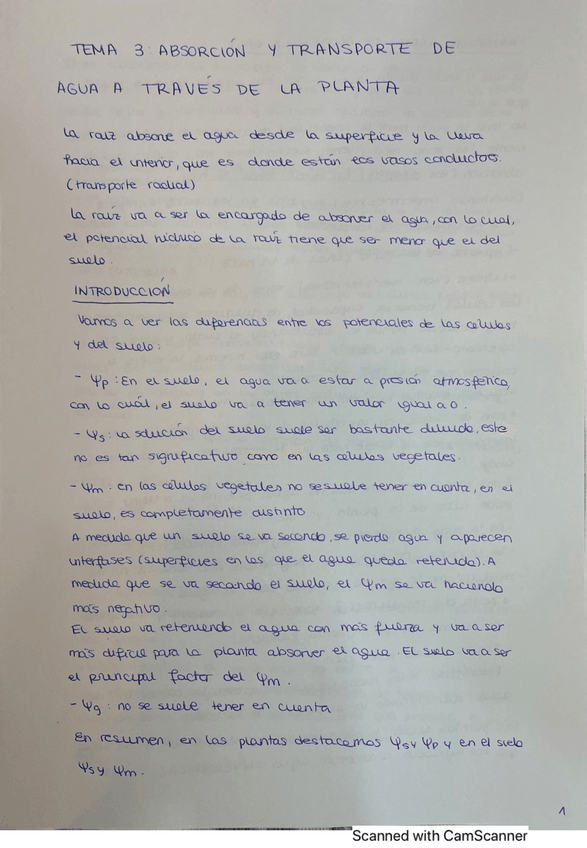 TEMA 3 ABSORCIÓN Y TRANSPORTE DE
AGUA A TRAVÉS DE LA PLANTA
La raíz absorve el agua desde la superficie y la lleva
hacia el interior, que es donde están eos vasos conductores.
(transporte radial)
La raíz va a ser la encargada de absorver el agua, con lo cual,
el potencial hídrico de la raíz tiene que ser menor que el del
suelo.
INTRODUCCIÓN
Vamos a ver las diferencias entre los potenciales de las células
y del suelo:
- Ψp: En el suelo, el agua va a estar a presión atmosférica,
con lo cuál, el suelo va a tener un valor igual a 0.
- Ψs: la solución del suelo suele ser bastante diluida, este
no es tan significativo como en las células vegetales.
- Ψm: en las células vegetales no se suele tener en cuenta, en el
suelo, es completamente distinto
A medida que un suelo se va secando, se pierde agua y aparecen
interfases (superficies en las que el agua queda retenida). A
medida que se va secando el suelo, el Ψm se va haciendo
más negativo.
El suelo va reteniendo el agua con más fuerza y va a ser
más difícil para la planta absorver el agua. El suelo va a ser
el principal factor del Ψm.
- Ψg: no se suele tener en cuenta
En resumen, en las plantas destacamos Ψs y Ψp y en el suelo
Ψs y Ψm.
1
Scanned with CamScanner